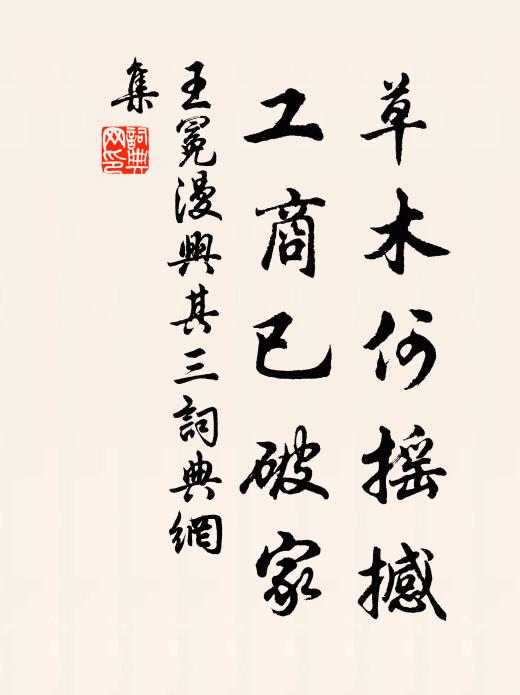 草木何摇撼
工商已破家
王冕漫興其三詞典網
集
詞典網印